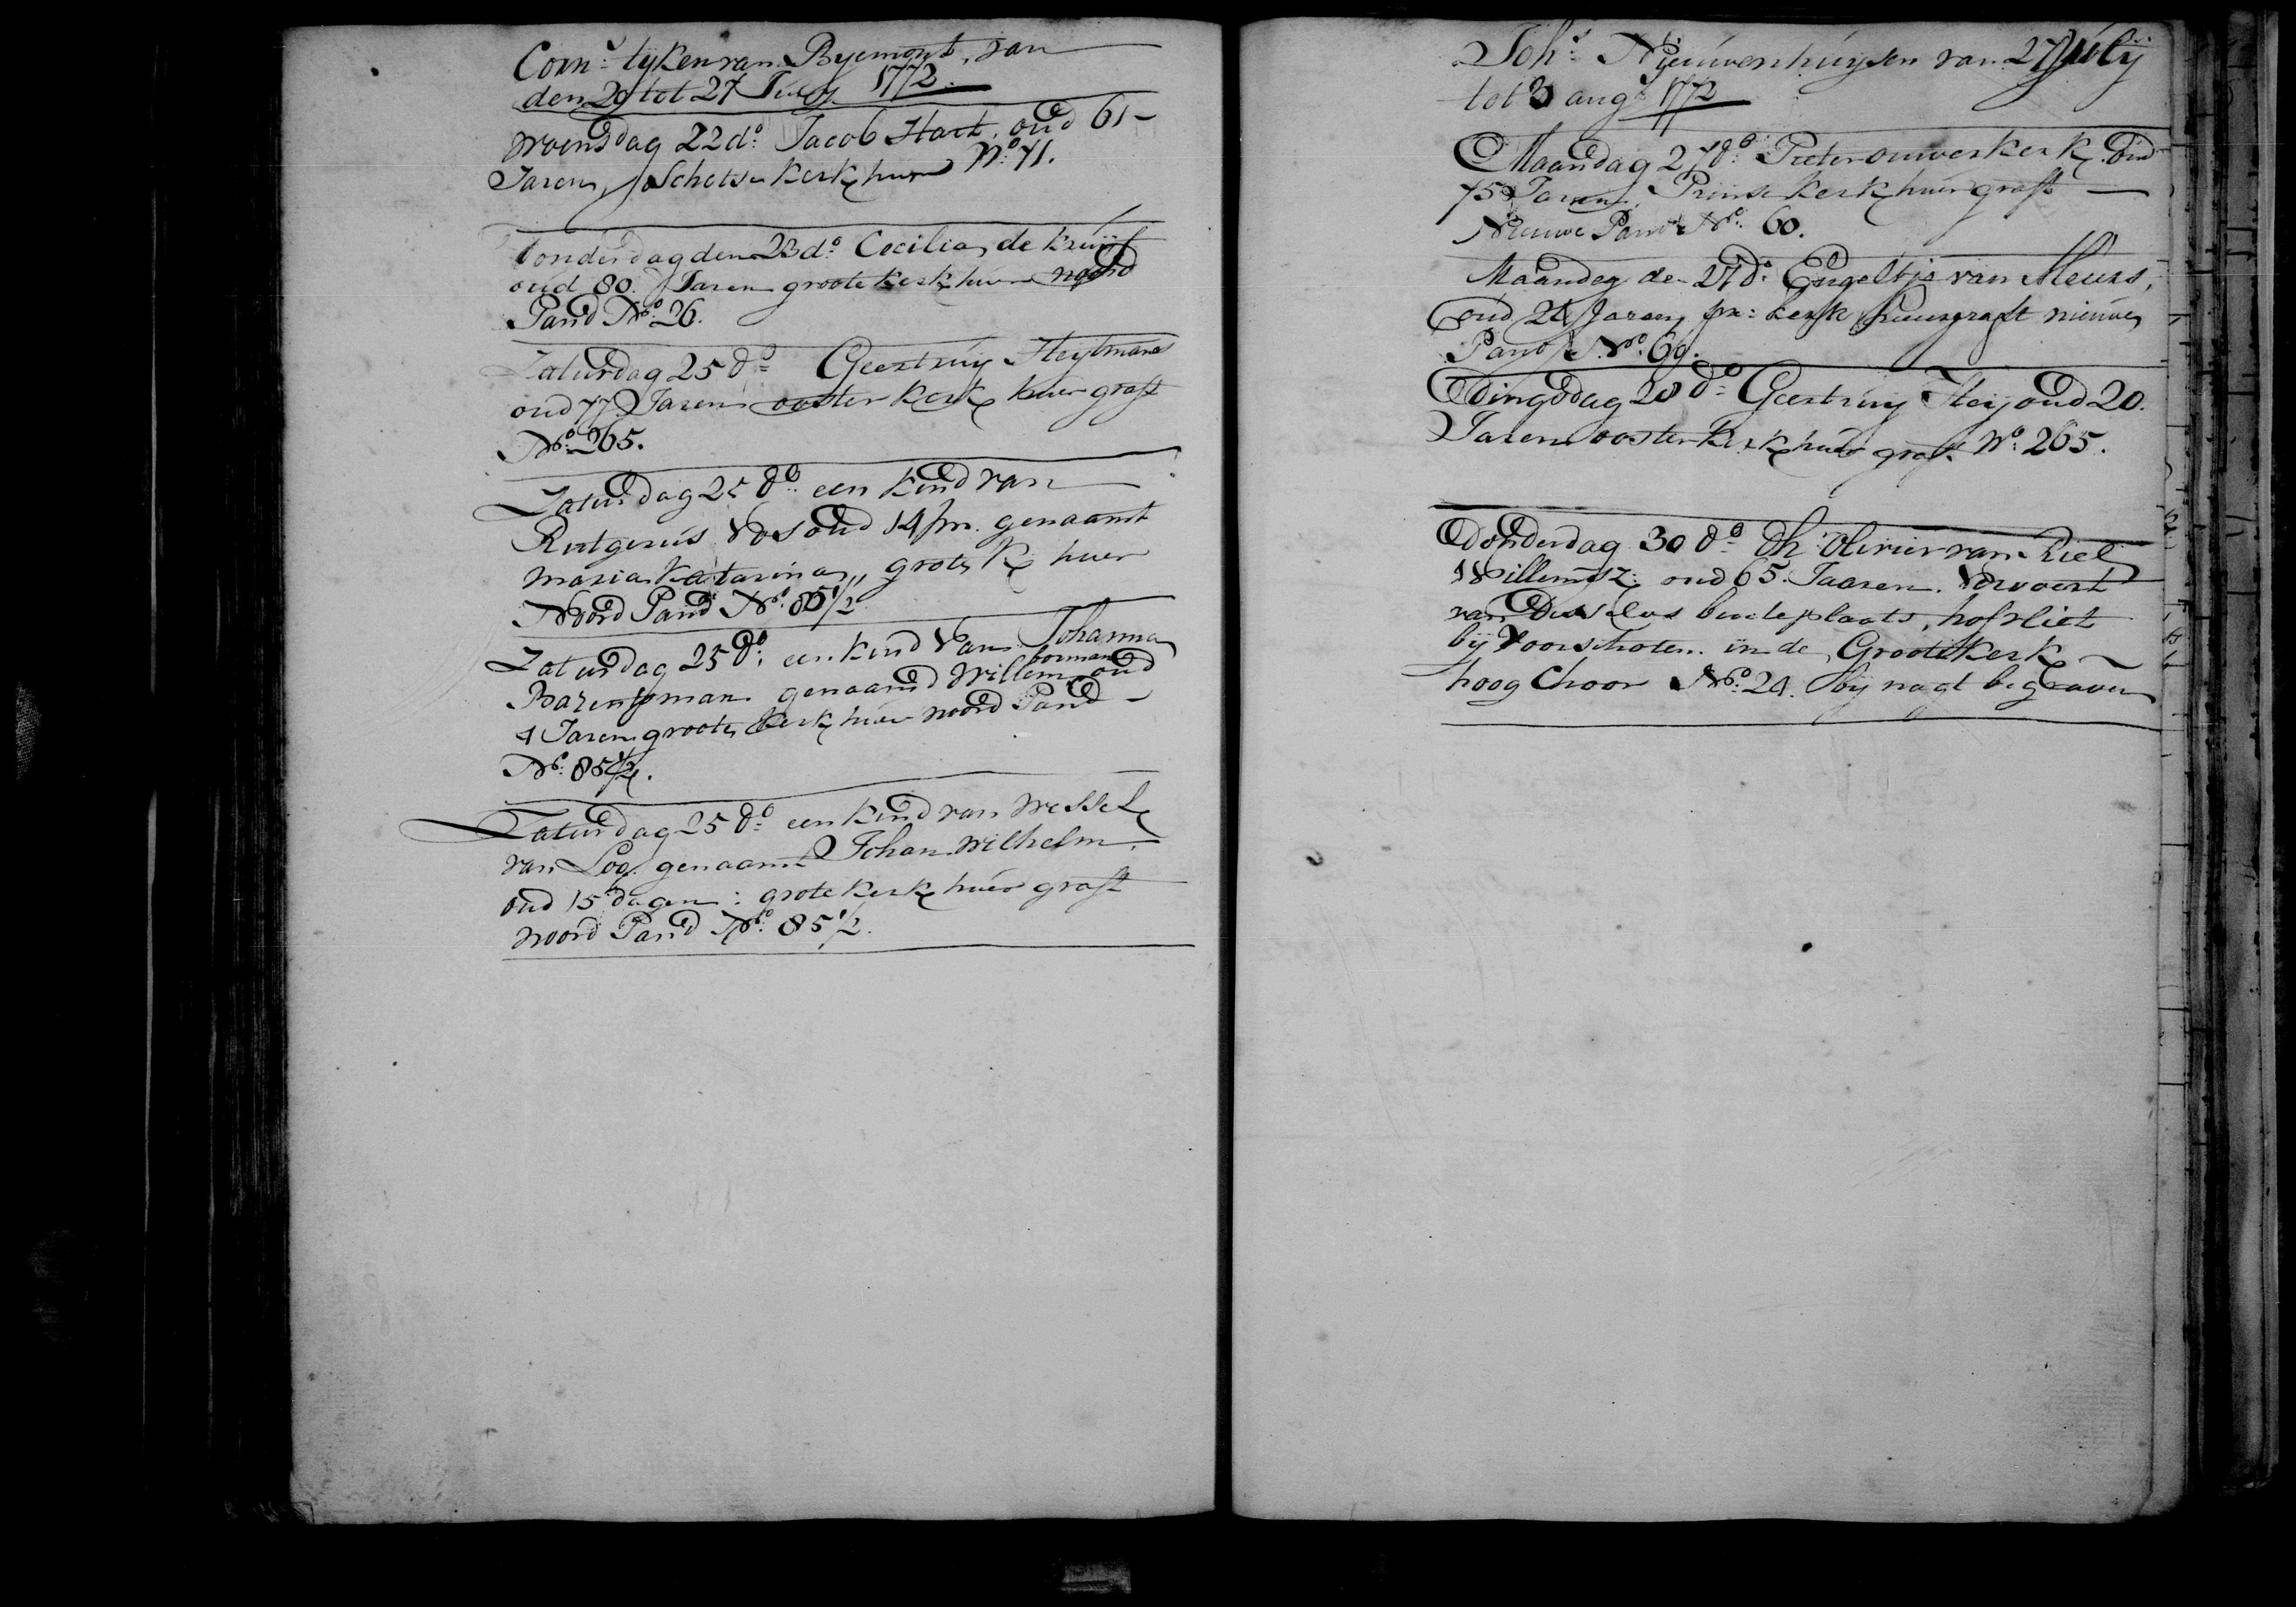 Corn:s tyken van Byemont, van
den 20 tot 27 July 1772.
Woensdag 22 do: Jacob Hart, oud 61 -
Jaren, Schotse kerk huur No: 71.
Donderdag den 23 do: Cecilia de Kruijf
oud 80. Jaren groote kerk huur noord
Pand No: 26.
Zaturdag 25 do= Geertruy Heytmans
oud 77. Jaren ooster kerk huur graft
No: 265.
Zaturdag 25 do: een kind van
Rutgerus Vos oud 14 m. genaamt
Maria Katarina, grote K huur
Noord Pand No: 85 1/2
Zaturdag 25 do: een kind van Johanna
borman
Barentsman genaamd Willem oud
4 Jaren groote kerk huur noord Pand -
No: 85 1/2.
Zaturdag 25 do= een kind van Wessel
van Loo. genaamt Johan Wilhelm.
oud 15 dagen: grote kerk huur graft
noord Pand No: 85 1/2.
Joh:s Nieuwenhuysen van 27 July
tot 3 aug:s 1772
Maandag 27 do: Pieter ouwerkerk. oud
75 Jaren, Prinse kerk huur graft
Nieuwe Pand No: 60.
Maandag de 27 do: Engeltje van Meurs,
oud 24 Jaren, pr: kerk huurgraft nieuwe
Pand No: 60.
Dingsdag 28 do= Geertruy Heij oud 20.
Jaren ooster kerk huur graft No: 265.
Donderdag 30 do= Dh Olivier van Riel
Willemsz: oud 65 Jaaren. Vervoert
van Desselvs buiteplaats, hofvliet
bij Voorschoten. in de Groote kerk
hoog Choor No: 24. bij nagt begraven